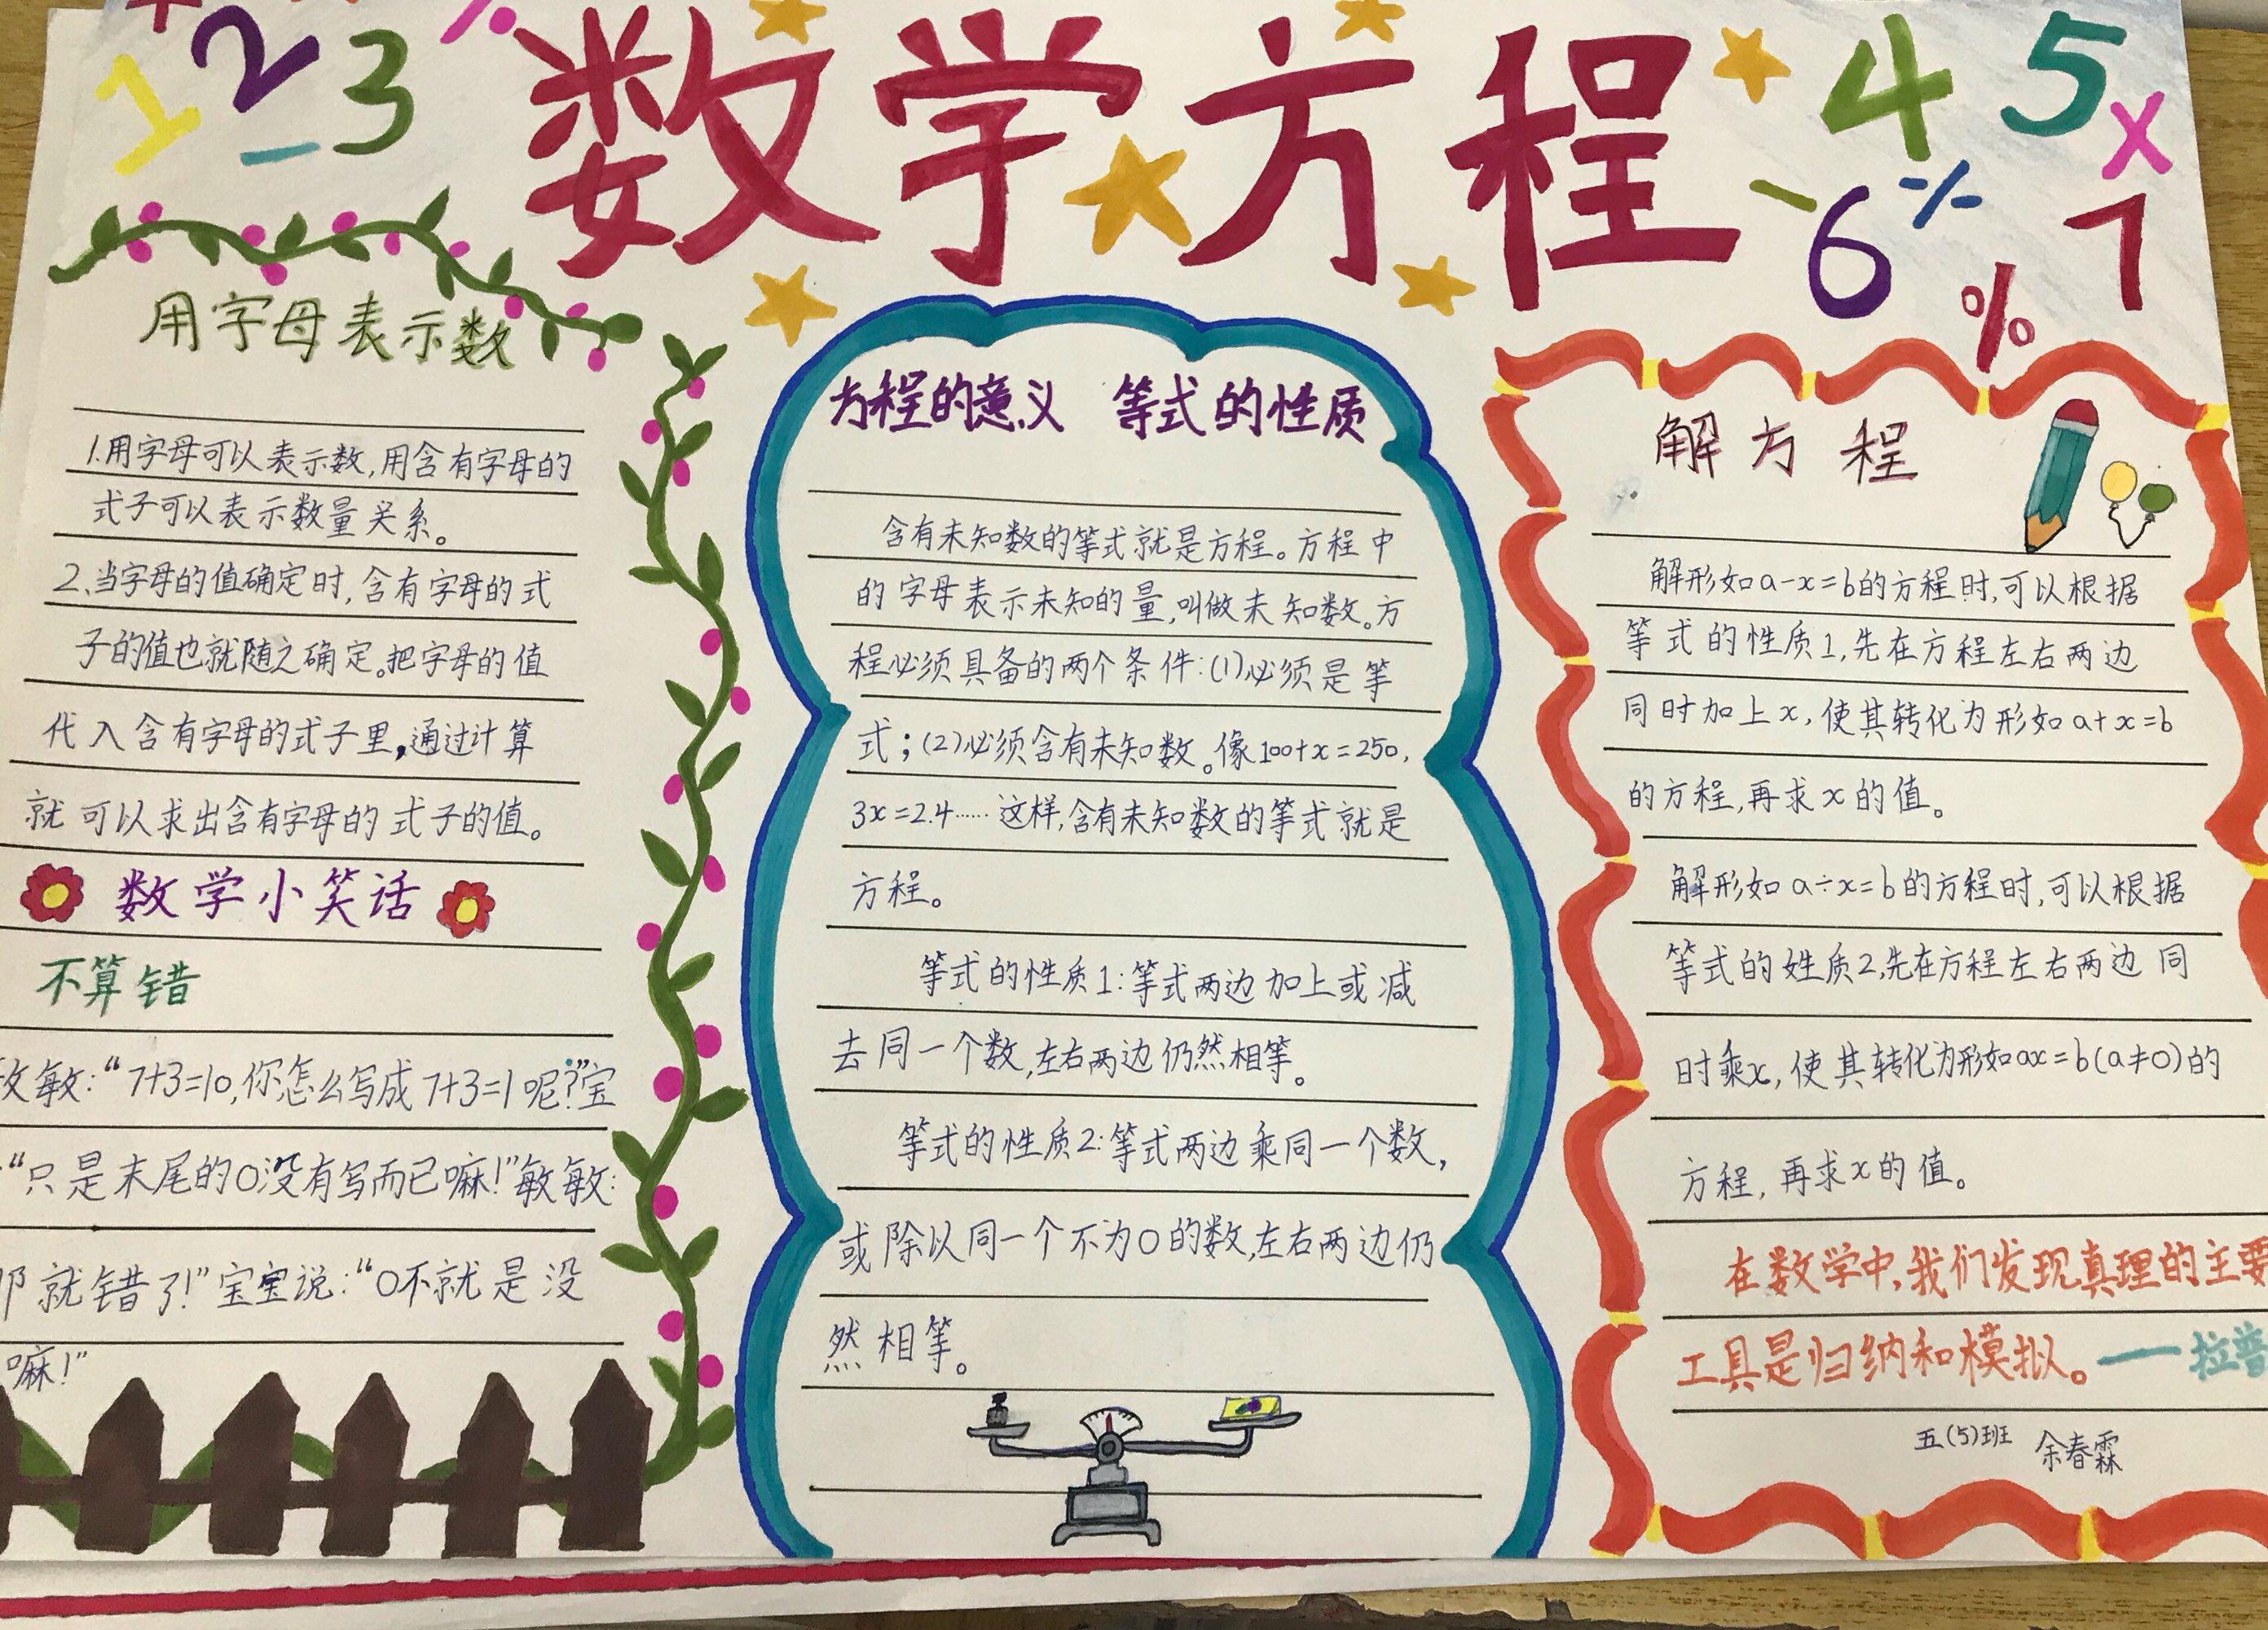 +
1
2
3
-
%
数学方程
4
5
x
-
6
÷
7
%
用字母表示数
1.用字母可以表示数,用含有字母的
式子可以表示数量关系。
2.当字母的值确定时,含有字母的式
子的值也就随之确定。把字母的值
代入含有字母的式子里,通过计算
就可以求出含有字母的式子的值。
数学小笑话
不算错
敏:“7+3=10,你怎么写成7+3=1呢?”宝
“只是末尾的0没有写而已嘛!”敏敏:
就错了!”宝宝说:“0不就是没
嘛!”
方程的意义 等式的性质
含有未知数的等式就是方程。方程中
的字母表示未知的量,叫做未知数。方
程必须具备的两个条件:(1)必须是等
式;(2)必须含有未知数。像100+x=250,
3x=2.4……这样,含有未知数的等式就是
方程。
等式的性质1:等式两边加上或减
去同一个数,左右两边仍然相等。
等式的性质2:等式两边乘同一个数,
或除以同一个不为0的数,左右两边仍
然相等。
解方程
解形如a-x=b的方程时,可以根据
等式的性质1,先在方程左右两边
同时加上x,使其转化为形如a+x=b
的方程,再求x的值。
解形如a÷x=b的方程时,可以根据
等式的姓质2,先在方程左右两边同
时乘x,使其转化为形如ax=b(a≠0)的
方程,再求x的值。
在数学中,我们发现真理的主要
工具是归纳和模拟。——拉普
五(5)班 余春霖